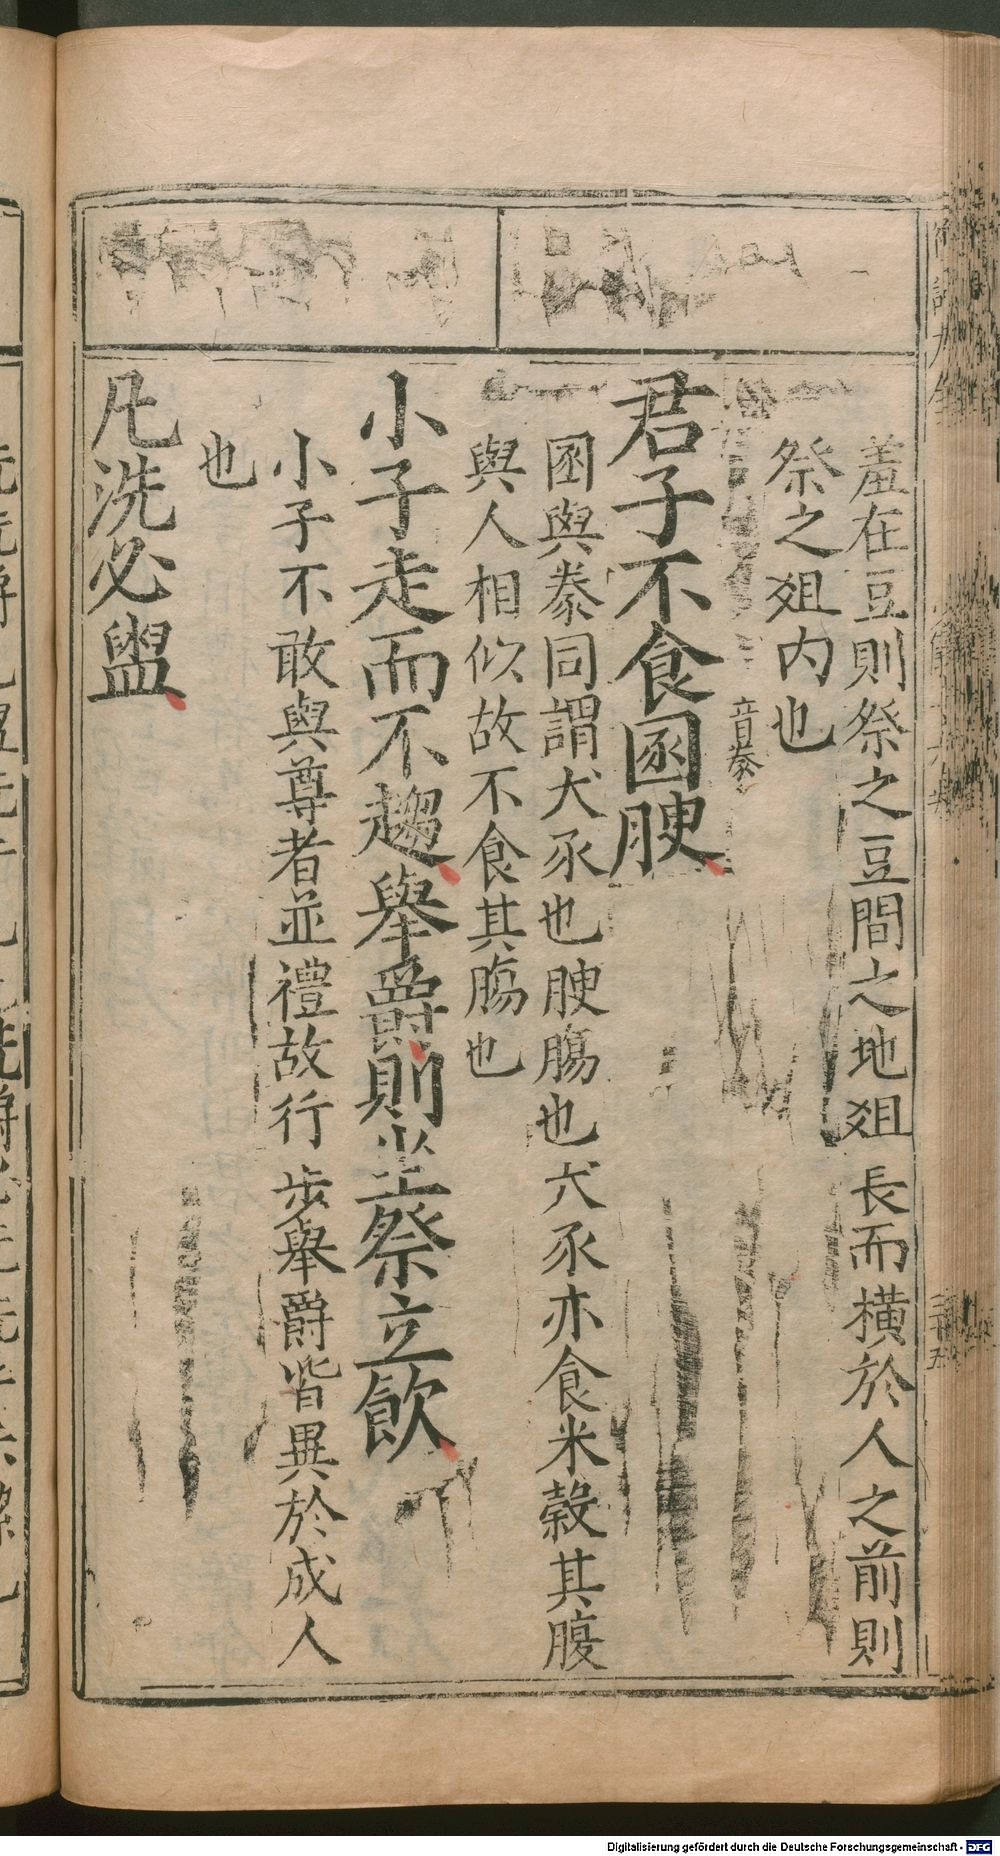 羞在豆則祭之豆間之地爼長而橫於人之前則
祭之爼内也
君子不食圂腴
音豢
圂與豢同謂犬豕也腴膓也犬豕亦食米穀其腹
與人相似故不食其膓也
小子走而不趨舉爵則坐祭立飲
小子不敢與尊者並禮故行步舉爵皆異於成人
也
凡洗必盥
Digitalisierung gefördert durch die Deutsche Forschungsgemeinschaft - DFG